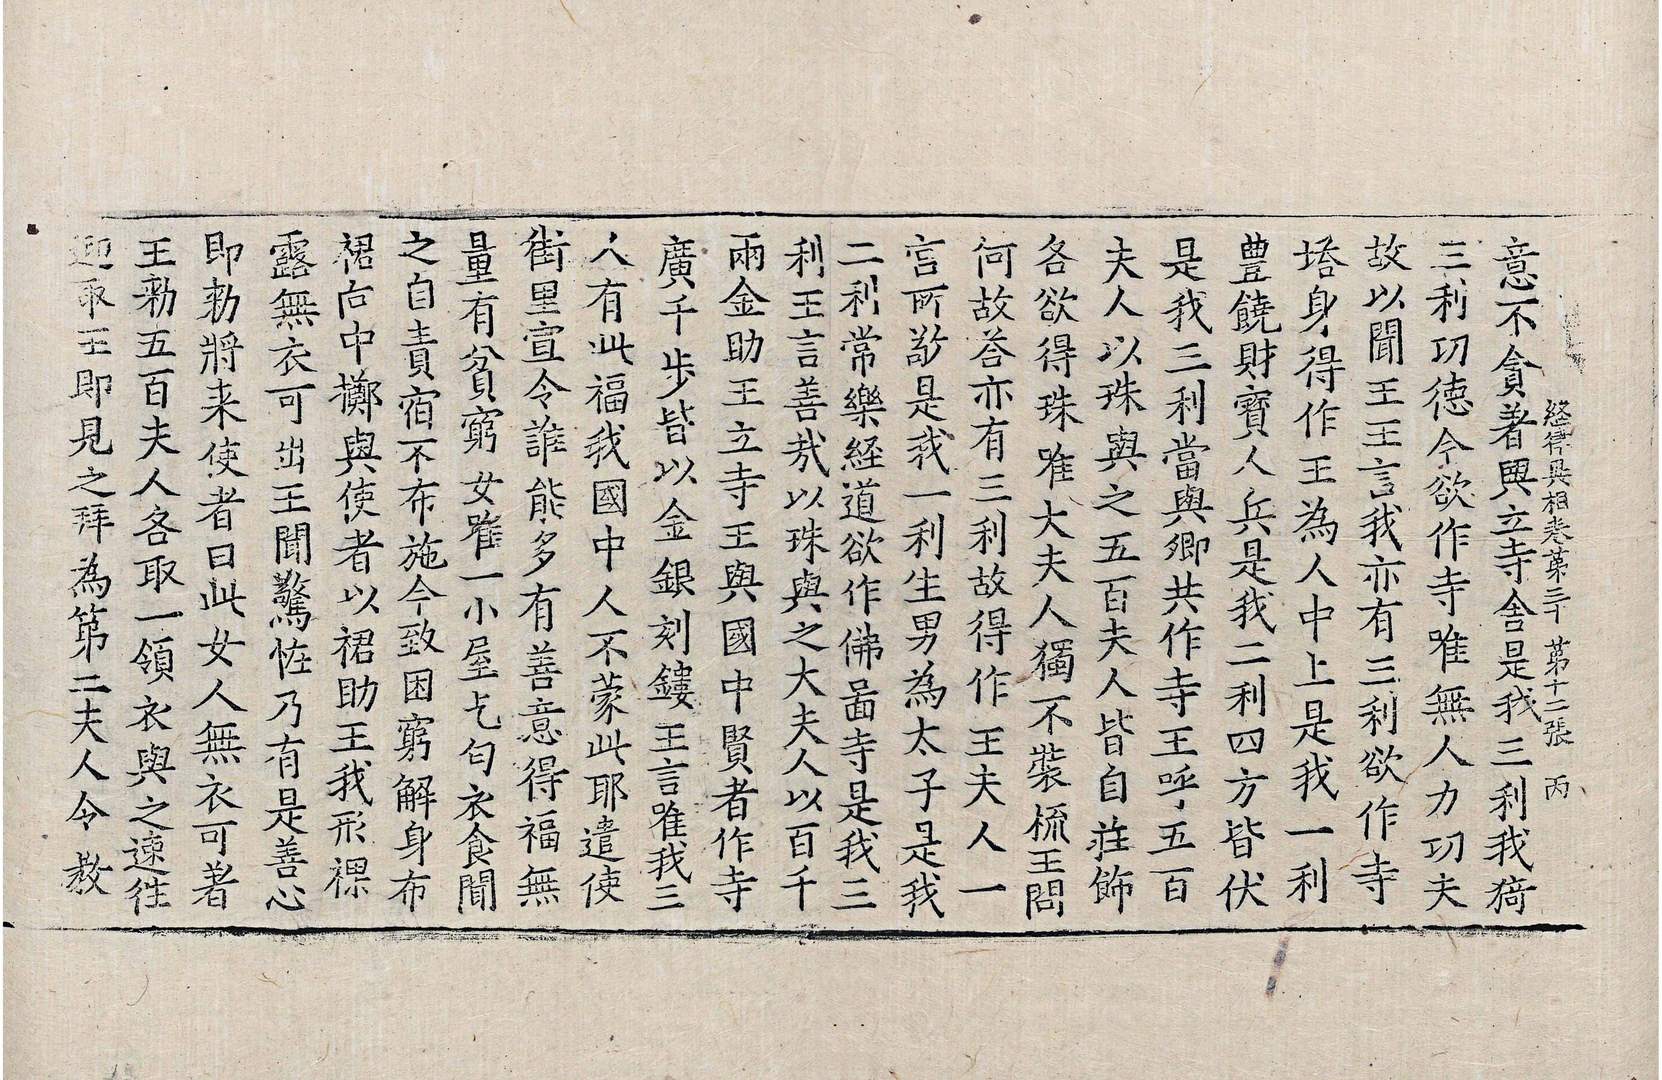 經律異相卷第三十　第十二張　丙
意不貪著興立寺舍是我三利我猗
三利功德今欲作寺唯無人力功夫
故以聞王王言我亦有三利欲作寺
塔身得作王為人中上是我一利
豊饒財寶人兵是我二利四方皆伏
是我三利當與卿共作寺王呼五百
夫人以珠與之五百夫人皆自莊飾
各欲得珠唯大夫人獨不裝梳王問
何故荅亦有三利故得作王夫人一
言所敬是我一利生男為太子是我
二利常樂經道欲作佛啚寺是我三
利王言善㢤以珠與之大夫人以百千
兩金助王立寺王與國中賢者作寺
廣千步皆以金銀刻鏤王言唯我三
人有此福我國中人不蒙此耶遣使
街里宣令誰能多有善意得福無
量有貧窮女唯一小屋乞匃衣食聞
之自責宿不布施今致困窮解身布
裙向中擲與使者以裙助王我形裸
露無衣可出王聞驚恠乃有是善心
即勑將来使者曰此女人無衣可著
王勑五百夫人各取一領衣與之速往
迎取王即見之拜為第二夫人令教